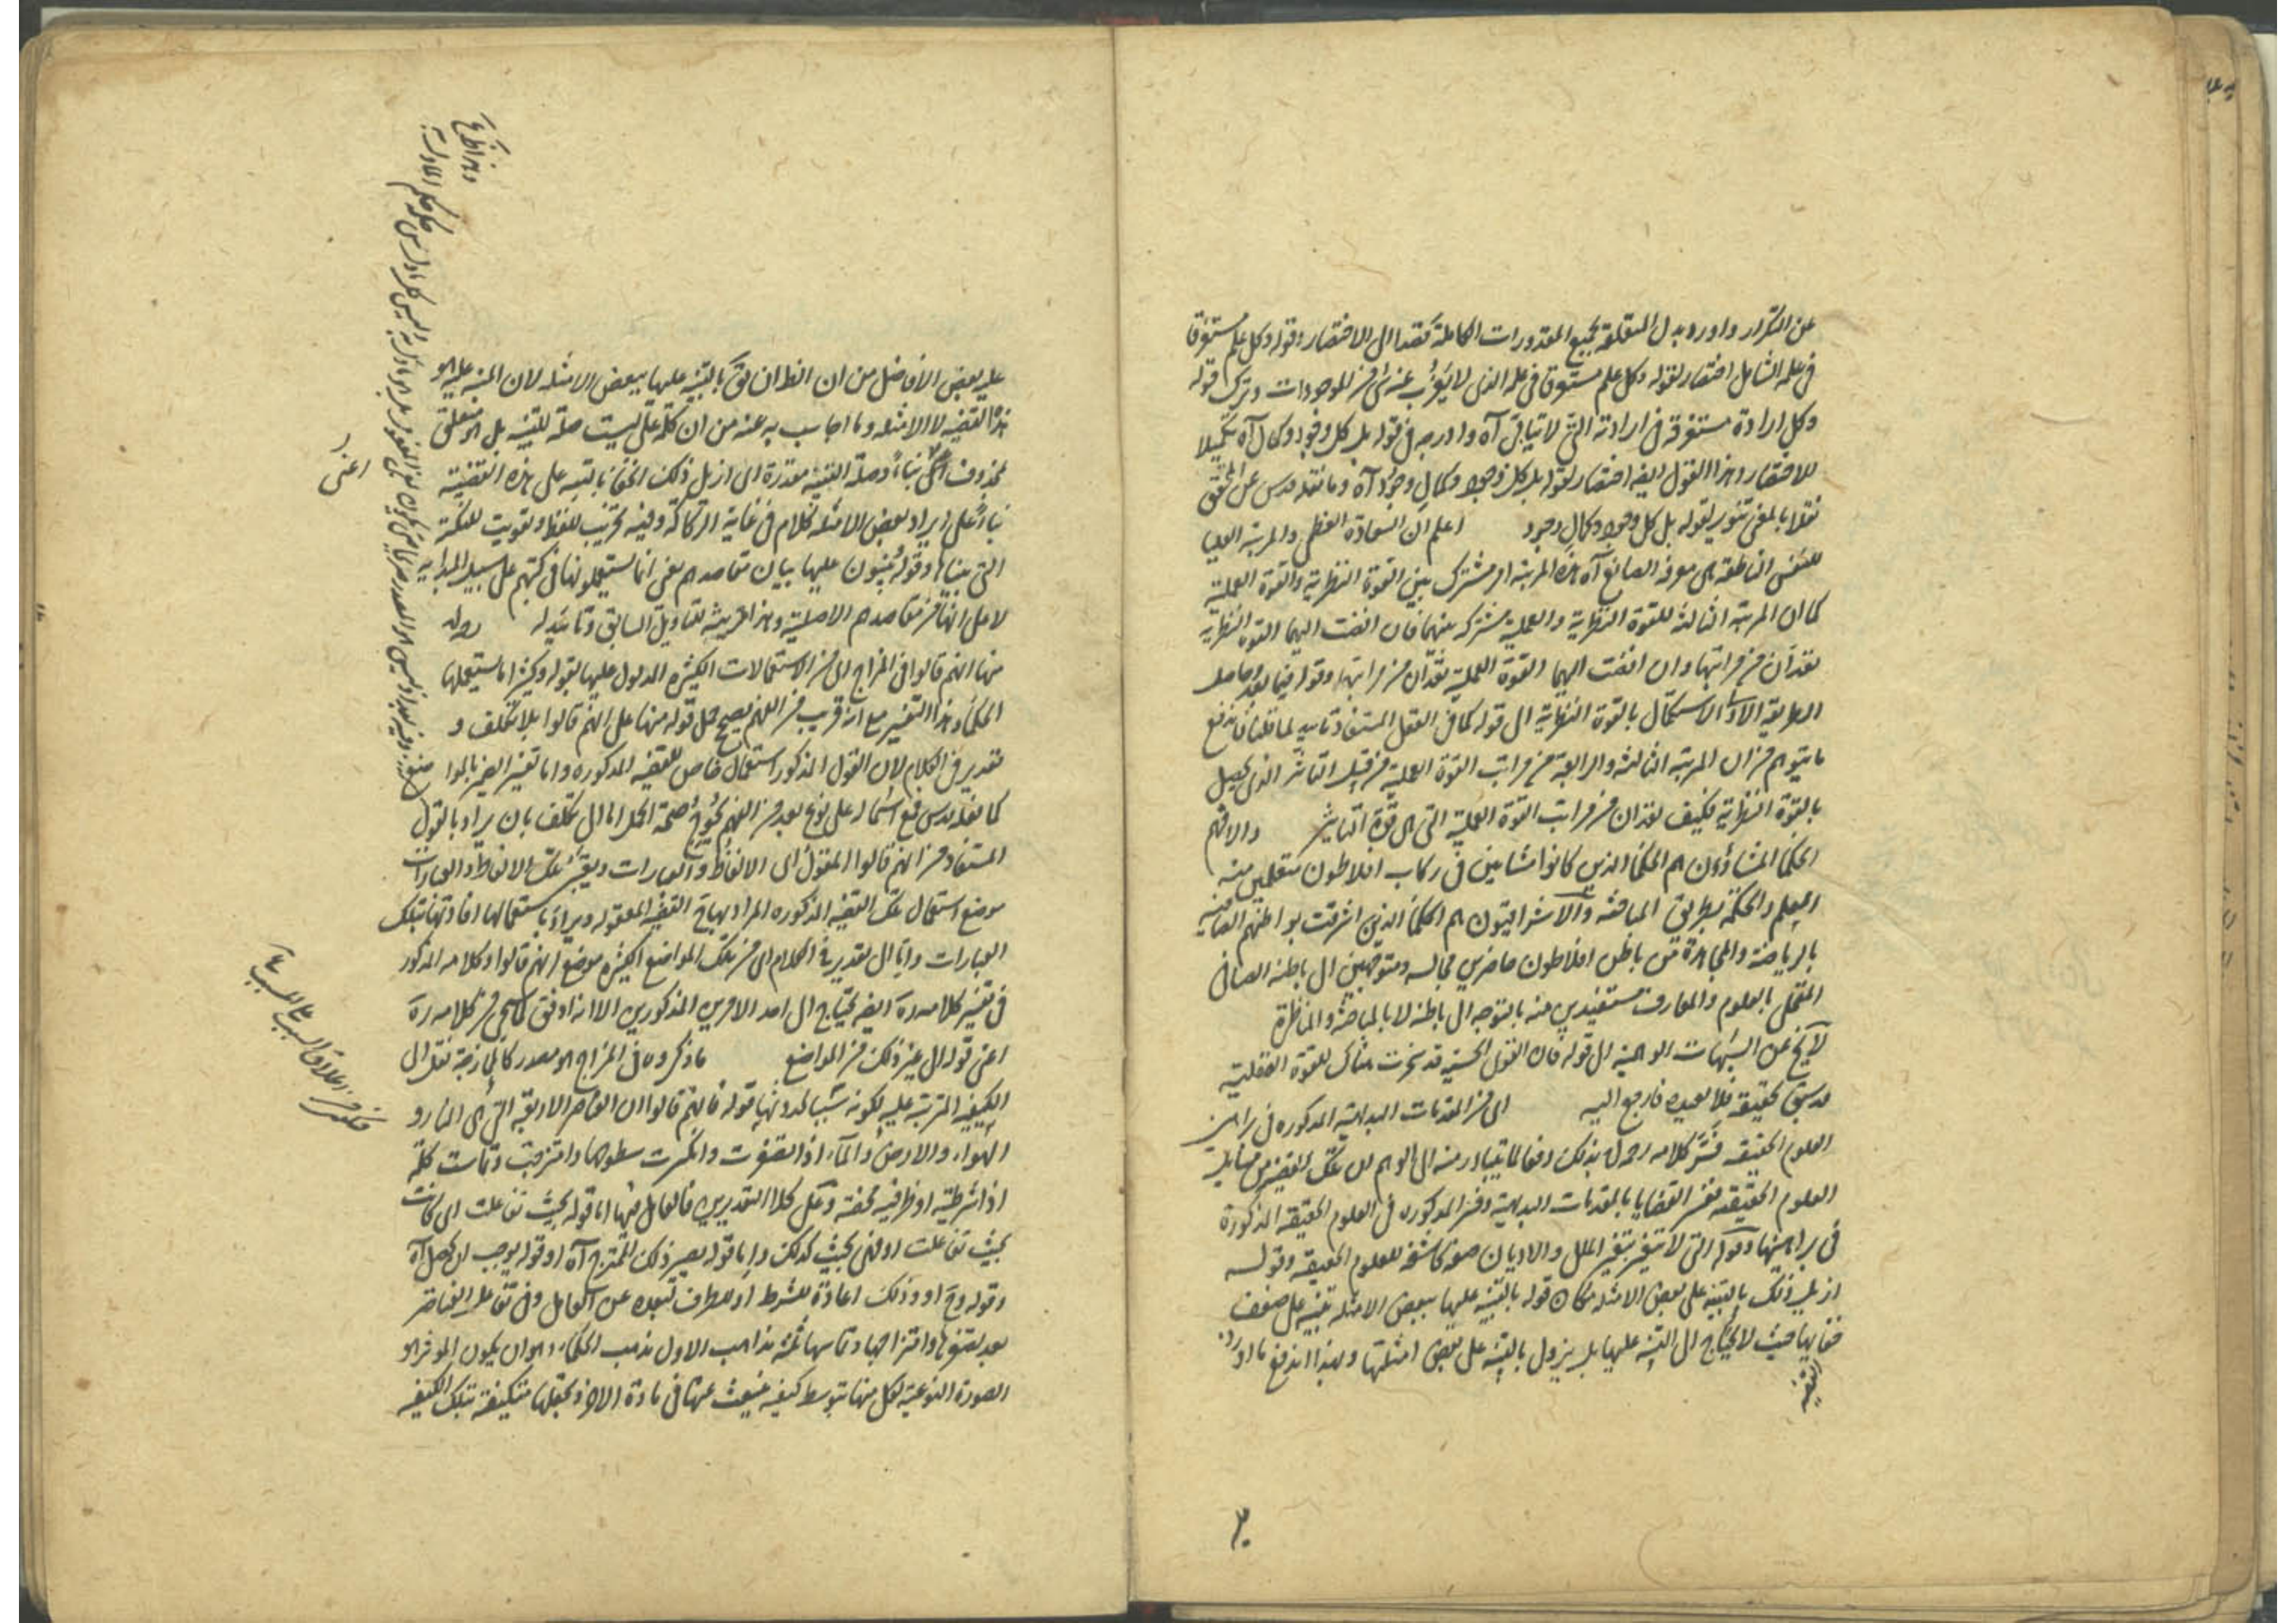 عن التكرار واورد بدل المتعلقة بجميع المقدورات الكاملة قصدا الى الاختصار وقوله وكل علم مستغرقا
فى علمه الشامل اختصار لقوله وكل علم مستغرق فى علمه الذى لا يعزب عنه شئ من الموجودات وترك قوله
وكل ارادة مستغرقة فى ارادته التى لا آه وادرجه فى قوله بل كل وجود وكمال آه تكميلا
للاختصار وهذا القول ايضه اختصار لقوله بل كل وجود وكمال وجود آه وما نقله قدس عن المحقق
نقلا بالمعنى تنوير لقوله بل كل وجود وكمال وجود اعلم ان السعادة العظمى والمرتبة العليا
للنفس الناطقة هى معرفة الصانع آه هذه المرتبة امر مشترك بين القوة النظرية والقوة العملية
كما ان المرتبة الثالثة للقوة النظرية والعملية مشتركة بينهما فان اضفت اليهما القوة النظرية
تعدان من مراتبها وان اضفت اليهما القوة العملية تعدان من مراتبها وقوله فيما بعد وحاصل
الطريقة الاولى الاستكمال بالقوة النظرية الى قوله كما فى العقل المستفاد تاييد لما قلنا فاندفع
ما يتوهم من ان المرتبة الثالثة والرابعة من مراتب القوة العملية من قبيل التاثر الذى يحصل
بالقوة النظرية فكيف تعدان من مراتب القوة العملية التى هى قوة التاثير والا فهم
الحكماء المشاؤون هم الحكماء الذين كانوا مشائين فى ركاب افلاطون متعلمين منه
العلم والحكمة بطريق المباحثة والاشراقيون هم الحكماء الذين اشرقت بواطنهم الصافية
بالرياضة والمجاهدة من باطن افلاطون حاضرين مجالسه ومتوجهين الى باطنه الصافى
المتحلى بالعلوم والمعارف مستفيدين منه بالتوجه الى باطنه لا بالمباحثة والمناظرة
لا يخ عن الشبهات الوهمية الى قوله فان القوى الحسية قد سخرت هناك للقوة العقلية
قد سبق تحقيقه فلا نعيده فارجع اليه اى من المقدمات البداهية المذكورة فى براهين
العلوم الحقيقية فسر كلامه رحمه الله بذلك دفعا لما يتبادر منه الى الوهم ان تلك القضية من مسايل
العلوم الحقيقية ففسر القضايا بالمقدمات البداهية وفسر المذكورة فى العلوم الحقيقية المذكورة
فى براهينها وقوله التى لا تتغير بتغير الملل والاديان صفة كاشفة للعلوم الحقيقية وقوله
ازيل ذلك بالتنبيه على بعض الامثلة مكان قوله بالتنبيه عليها ببعض الامثلة تنبيه على ضعف
خفايها حيث لا يحتاج الى التنبيه عليها بل يزول بالتنبيه على بعض امثلتها وبهذا اندفع ما اورد
القضية
عليه بعض الافاضل من ان الظ ان يق بالتنبيه عليها ببعض الامثلة لان المنبه عليه هو
هذه القضية لا الامثلة وما اجاب به عنه من ان كلمة على ليست صلة للتنبيه بل هو متعلق
بمحذوف اعنى بناء وصلة التنبيه مقدرة اى ازيل ذلك الخفا بالتنبيه على هذه القضية
بناء على ايراد بعض الامثلة فكلام فى غاية الركاكة وفيه تخريب للفظ وتفويت للنكتة
التى بيناها وقوله يبنون عليها بيان مقاصدهم يعنى انما يستعملونها فى كتبهم على سبيل المبدائية
لا على انها من مقاصدهم الاصلية وهذا قرينة للتاويل السابق وتاييد له قوله
منها انهم قالوا فى المزاج اى من الاستعمالات الكثيرة المدلول عليها بقوله وكثيرا ما يستعملها
الحكماء وهذا التفسير مع انه قريب من الفهم يصح حمل قوله منها على انهم قالوا بلا تكلف و
تقدير فى الكلام لان القول المذكور استعمال خاص للقضية المذكورة واما تفسير الضمير بالمواضع
كما نقله قدس فمع اشتماله على نوع بعد من الفهم يحوج صحة الحمل اما الى تكلف بان يراد بالقول
المستفاد من انهم قالوا المقول اى الالفاظ والعبارات ويعتبر تلك الالفاظ والعبارات
موضع استعمال تلك القضية المذكورة المراد بها القضية المعقولة ويراد باستعمالها افادتها بتلك
العبارات واما الى تقدير فى الكلام اى من تلك المواضع الكثيرة موضع انهم قالوا وكلامه المذكور
فى تفسير كلامه ره ايضه يحتاج الى احد الامرين المذكورين الا انه اوفق لما سيجئ من كلامه ره
اعنى قوله الى غير ذلك من المواضع ما ذكروه فى المزاج هو مصدر كالممازجة نقل الى
الكيفية المترتبة عليه لكونه سببا لحدوثها قوله فانهم قالوا ان العناصر الاربعة التى هى النار و
الهواء والارض والماء اذا تصغرت وانكسرت سطوحها وامتزجت وتماست كلمة
اذا شرطية او ظرفية محضة وعلى كلا التقديرين فالعامل فيها اما قوله بحيث تفاعلت اى كانت
بحيث تفاعلت او لفى بحيث كذلك واما قوله يصير ذلك الممتزج آه او قوله يوجب ان يحصل آه
وقوله وح او وذلك اعادة للشرط او للظرف لبعده عن العامل وفى تفاعل العناصر
بعد تصغرها وامتزاجها وتماسها ثلثة مذاهب الاول مذهب الحكماء وهو ان يكون المؤثر هو
الصورة النوعية لكل منها بتوسط كيفية تنبعث عنها فى مادة الاخر ويجعلها متكيفة بتلك الكيفية
اعنى